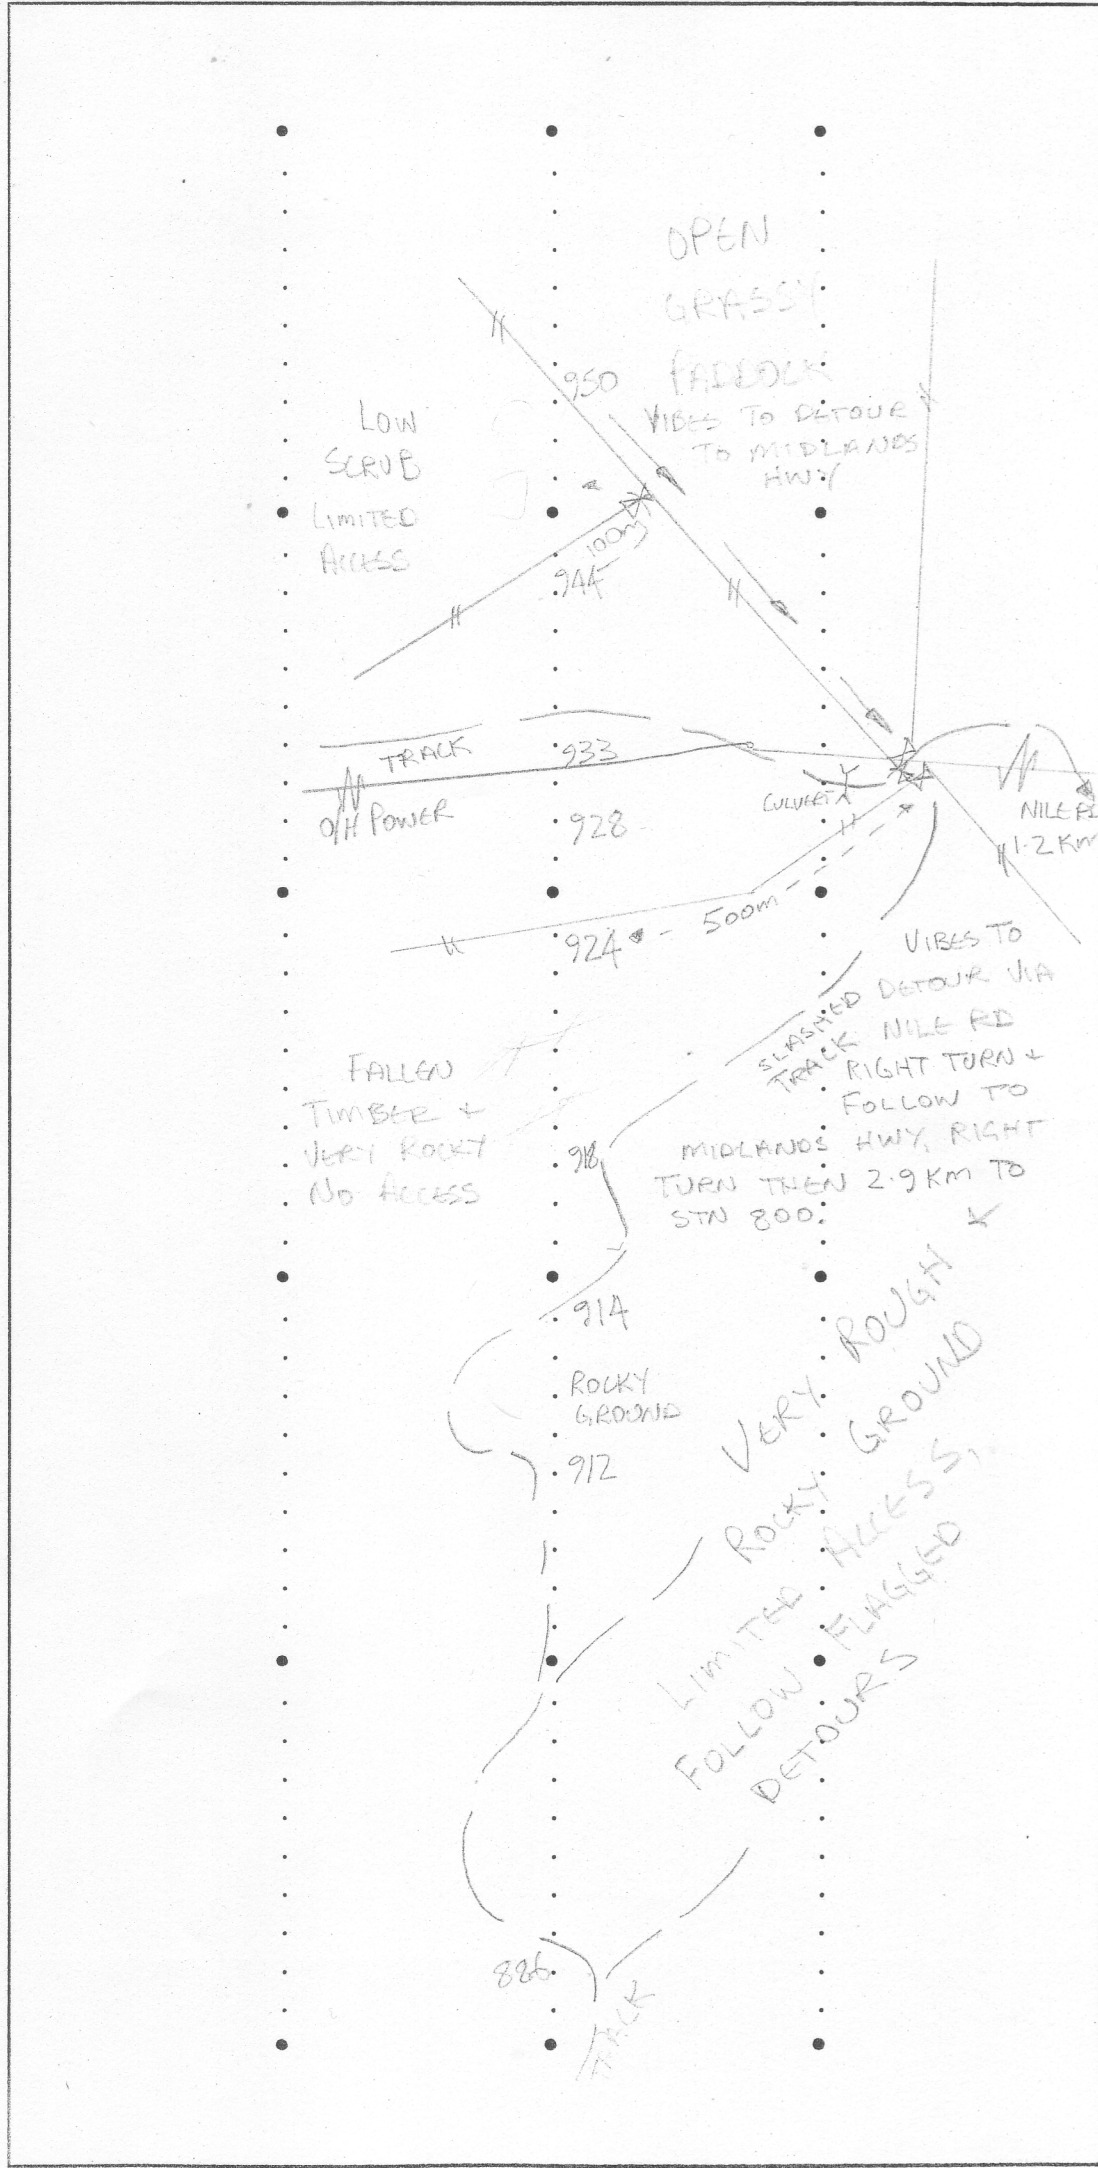 OPEN
GRASSY
PADDOCK
950
VIBES TO DETOUR
TO MIDLANDS
HWY
LOW
SCRUB
LIMITED
ACCESS
100m
944
TRACK
933
O/H POWER
CULVERT
928
NILE RD
1.2 Km
500m
924
VIBES TO
DETOUR VIA
NILE RD
RIGHT TURN +
FOLLOW TO
MIDLANDS HWY, RIGHT
TURN THEN 2.9 KM TO
STN 800.
SLASHED
TRACK
FALLEN
TIMBER +
VERY ROCKY
NO ACCESS
918
914
ROCKY
GROUND
912
VERY ROUGH +
ROCKY GROUND
LIMITED ACCESS,
FOLLOW FLAGGED
DETOURS
886
TRACK